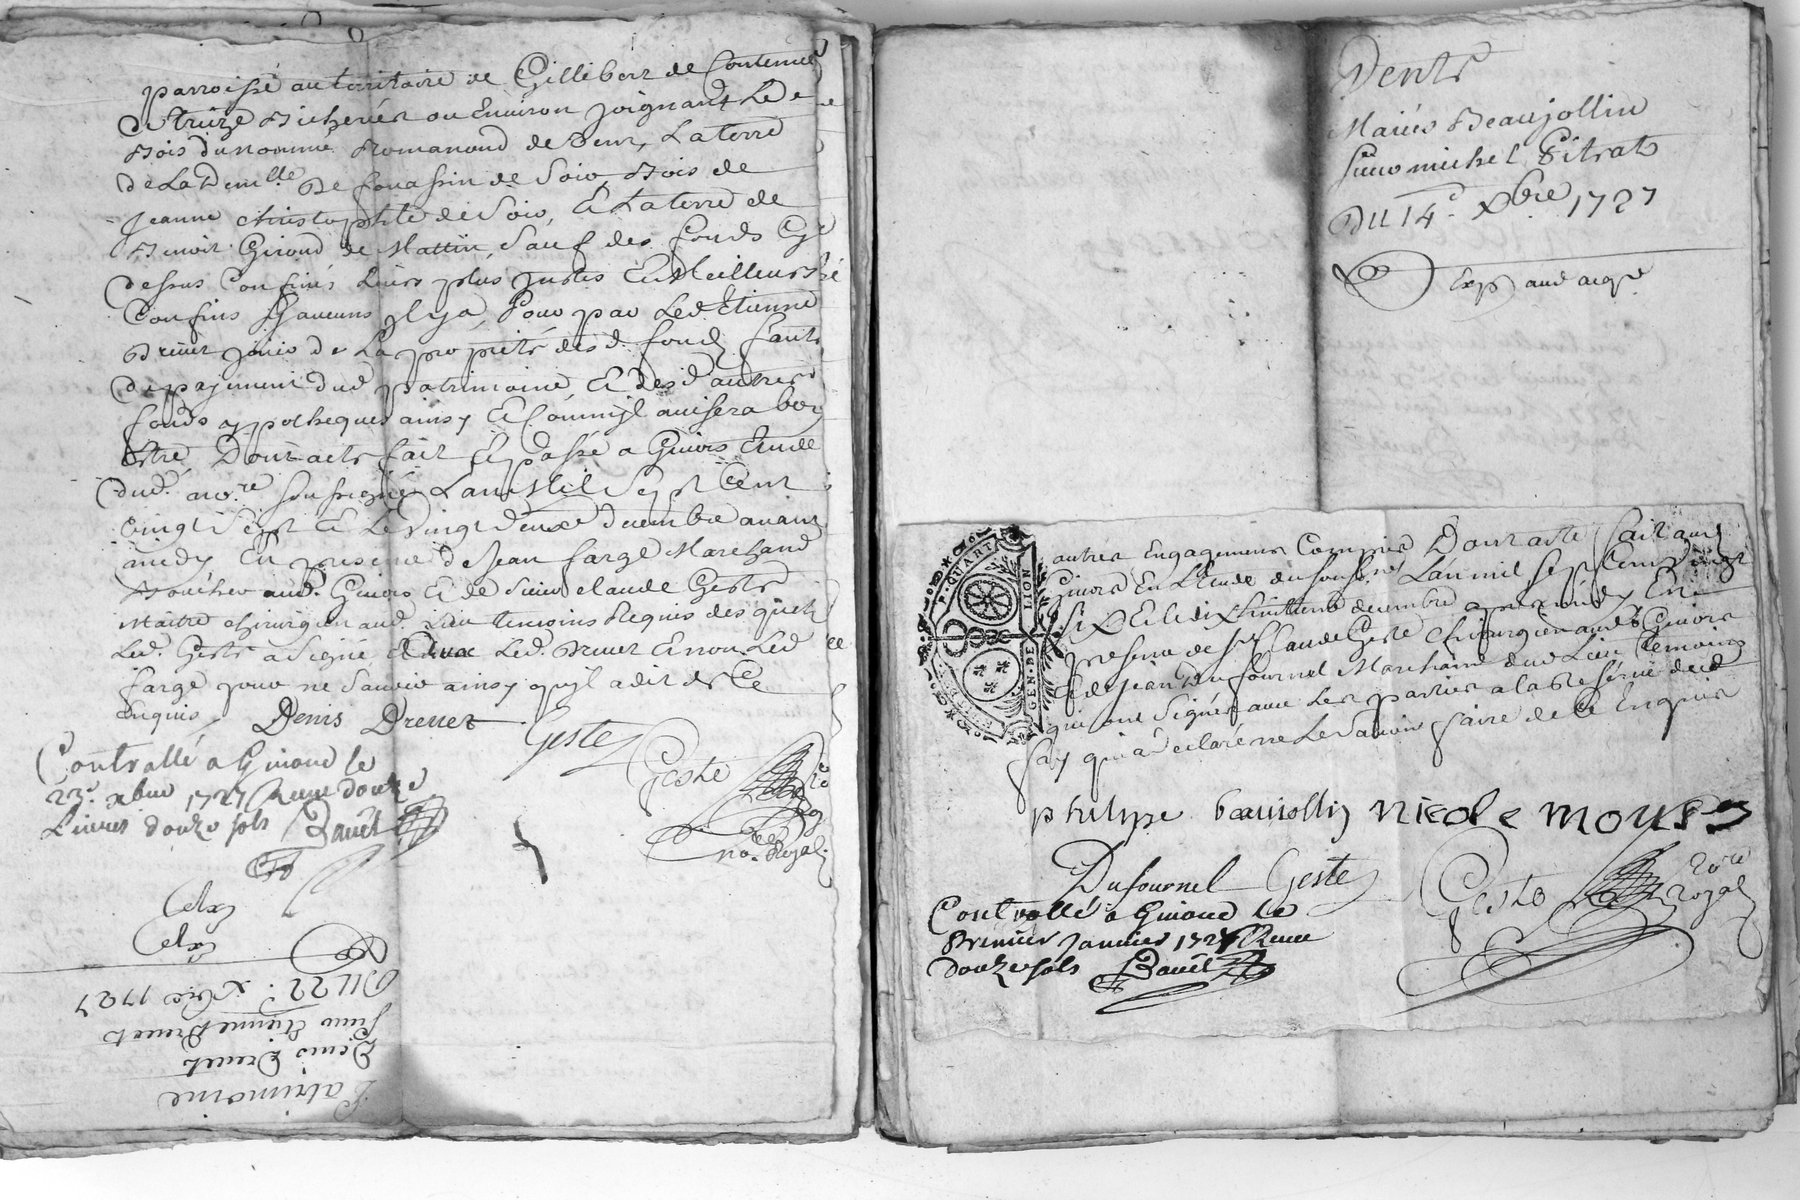 parroisse au territoire de Gillibert de Contenue
de treize Bicherées ou Environ joignant Le
Bois du nomme Romanond de Vent, La terre
de La Dem.lle De fouassin de Soio, Bois de
Jeanne christophle de Soio, Et La terre de
Benoit Giroud de Mattin Sauf des fonds Cy
dessus Confinés Leurs plus justes Et Meilleurs
Confins Sy aucuns il y a, Pour par Led Etienne
Drevet jouir de La proprieté desd. fonds faute
de payement dud patrimoine Et desd autres
fonds ypotheques ainsy Et comm'il avisera bon
Estre Dont acte fait Et passé a Givors Etude
dud. no.re soussigné L'an Mil Sept Cent
vingt Sept Et Le vingt deuxe decembre avant
midy En presence de Jean farge Marchand
Boucher aud. Givors Et de Sieur claude Geste
Maitre chirurgien aud. Lieu temoins Requis desquels
Led. Geste a Signé avec Led. Drevet Et non Led
farge pour ne Savoir ainsy qu'il a dit de Ce
Enquis
Denis Drevet
Geste
Geste
no.re Royal
Controllé a Givord le
23e xbre 1727 Receu douze
Livres douze sols Bavet
Patrimoine
Denis Drevet
Sieur Etienne Drevet
Du 22e xbre 1727
Vente
Mariés Beaujollin
Sieur michel Pitrat
Du 14e Xbre 1727
Exp aud acqr
P. QUART
GEN. DE LION
autres Engagemens Compris Dont acte fait aud
Givors En L'Etude du soussné L'an mil sept Cent vingt
six Et le dix huittieme decembre apres midy En
presence de Sr Claude Geste Chirurgien aud Givors
Et de Jean Dufournel Marchand dud Lieu temoins
qui ont Signés avec Les parties a la Reserve dud
fay qui a declaré ne Le Savoir faire de Ce Enquis
philippe bauiollin nicole mousy
Dufournel Geste
Geste nore Royal
Controllé a Givord le
Premier Janvier 1727 Receu
douze sols Bavet